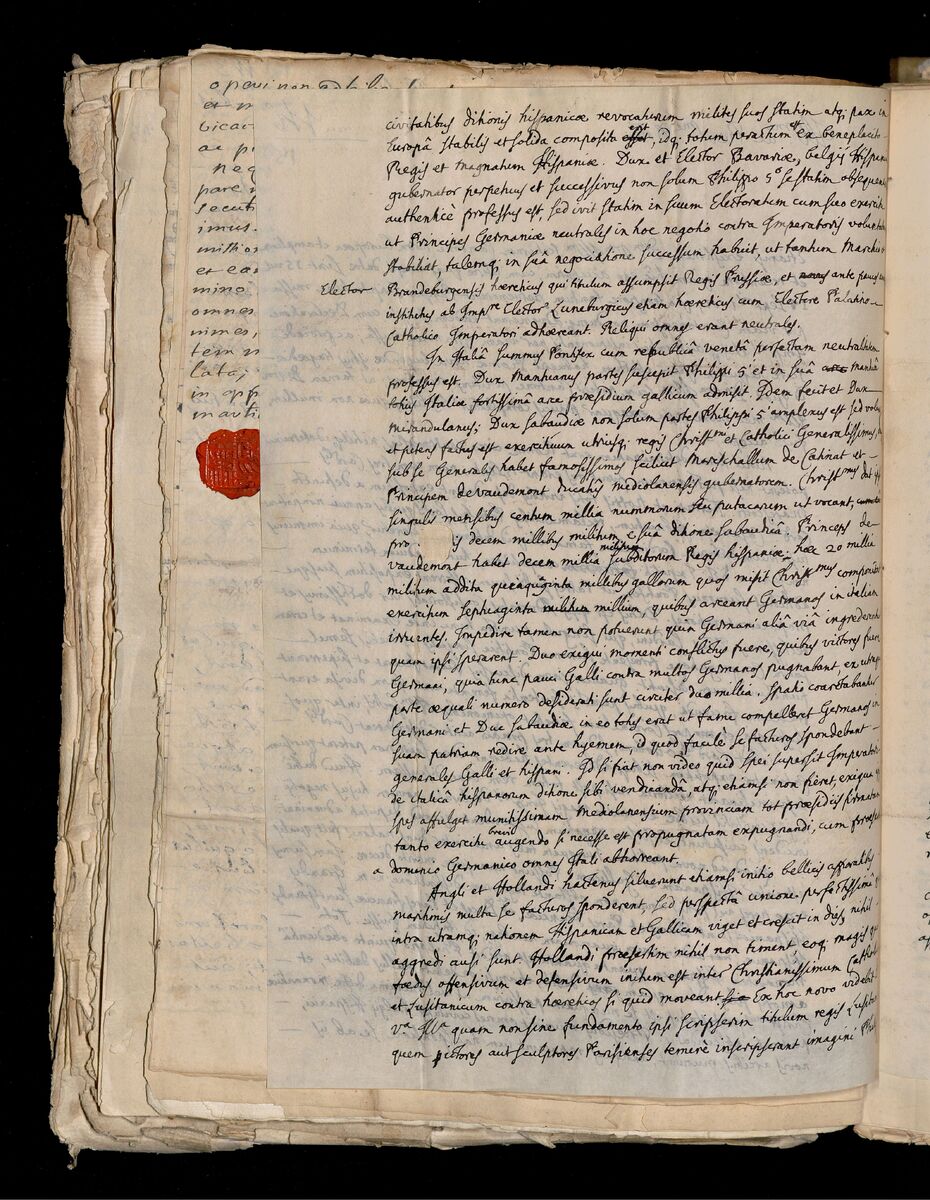 operi non
et m
bicar
ac p
neq
pare
secut
imus.
missio
et ea
mino
omnes
nimes,
tem n
lata;
in opp
m
civitatibus ditionis hispanicæ revocaturum milites suos statim atq; pax in
Europâ stabilis et solida composita esset, idq; totum paractum est ex beneplacito
Regis et magnatum Hispaniæ. Dux et Elector Bavariæ, belgij Hispani
gubernator perpetuus et successivus non solum Philippo 5º se statim obsequen
authenticè professus est, sed ivit statim in suum Electoratum cum suo exercitu
ut Principes Germaniæ neutrales in hoc negotio contra Imperatoris voluntat
stabiliat, talemq; in suâ negociatione successum habuit, ut tantum Marchio
Elector
Brandeburgensis hæreticus qui titulum assumpsit Regis Prussiæ, et ante paucos
institutus ab Impre Elector Luneburgicus etiam hæreticus cum Electore Palatino
Catholico Imperatori adhæreant. Reliqui omnes erant neutrales.
In Italiâ summus Pontifex cum republicâ venetâ perfectam neutralitatem
professus est. Dux Mantuanus partes suscepit Philippi 5i et in suâ Mantuâ
totius Italiæ fortissimâ arce præsidium gallicum admisit. Idem fecit et Dux
Mirandulanus; Dux sabaudiæ non solum partes Philippi 5i amplexus est sed volu
et petens factus est exercituum utriusq; regis Christmi et Catholici Generalissimus,
sub se Generales habet famosissimos scilicet Mareschallum de Catinat et
Principem de vaudemont ducatûs mediolanensis gubernatorem. Christmus dat
singulis mensibus centum millia nummorum seu patacarum ut vocant,
pro is decem millibus militum è suâ ditione sabaudicâ. Princeps de
vaudemont habet decem millia militum subditorum Regis hispaniæ. hæc 20 millia
militum addita quinquaginta millibus gallorum quos misit Christmus componunt
exercitum septuaginta millium, quibus arceant Germanos in italiam
irruentes. Impedire tamen non potuerunt quin Germani aliâ viâ ingrederentur
quam ipsi sperarent. Duo exigui momenti conflictus fuere, quibus victores fuere
Germani, quia hinc pauci Galli contra multos Germanos pugnabant, ex utraq;
parte æquali numero desiderati sunt circiter duo millia. Spatio coarctabantur
Germani et Dux sabaudiæ in eo totus erat ut fame compelleret Germanos in
suam patriam redire ante hyemem, id quod facilè se facturos spondebant
generales Galli et hispani. Id si fiat non video quid spei supersit Imperatori
de italicâ hispanorum ditione sibi vendicandâ, atq; etiamsi non fieret, exigua
spes affulget munitissimam Mediolanensium provinciam tot præsidiis firmatam
tanto exercitu brevi augendo si necesse est propugnatam expugnandi, cum præser
a dominio Germanico omnes Itali abhorreant.
Angli et Hollandi hactenus siluerunt etiamsi initio bellicis apparatibus
maritimis multa se facturos sponderent, sed perspectâ unione perfectissimâ
intra utramq; nationem Hispanicam et Gallicam viget et crescit in dies, nihil
aggredi ausi sunt. Hollandi præsertim nihil non timent, eoq; magis
fœdus offensivum et defensivum initum est inter Christianissimum Cathol
et Lusitanicum contra hæreticos si quid moveant. Ex hoc novo videbit
va Illa quam non sine fundamento ipsi scripserim titulum regis Lusitan
quem pictores aut sculptores Parisienses temerè inscripserant imagini